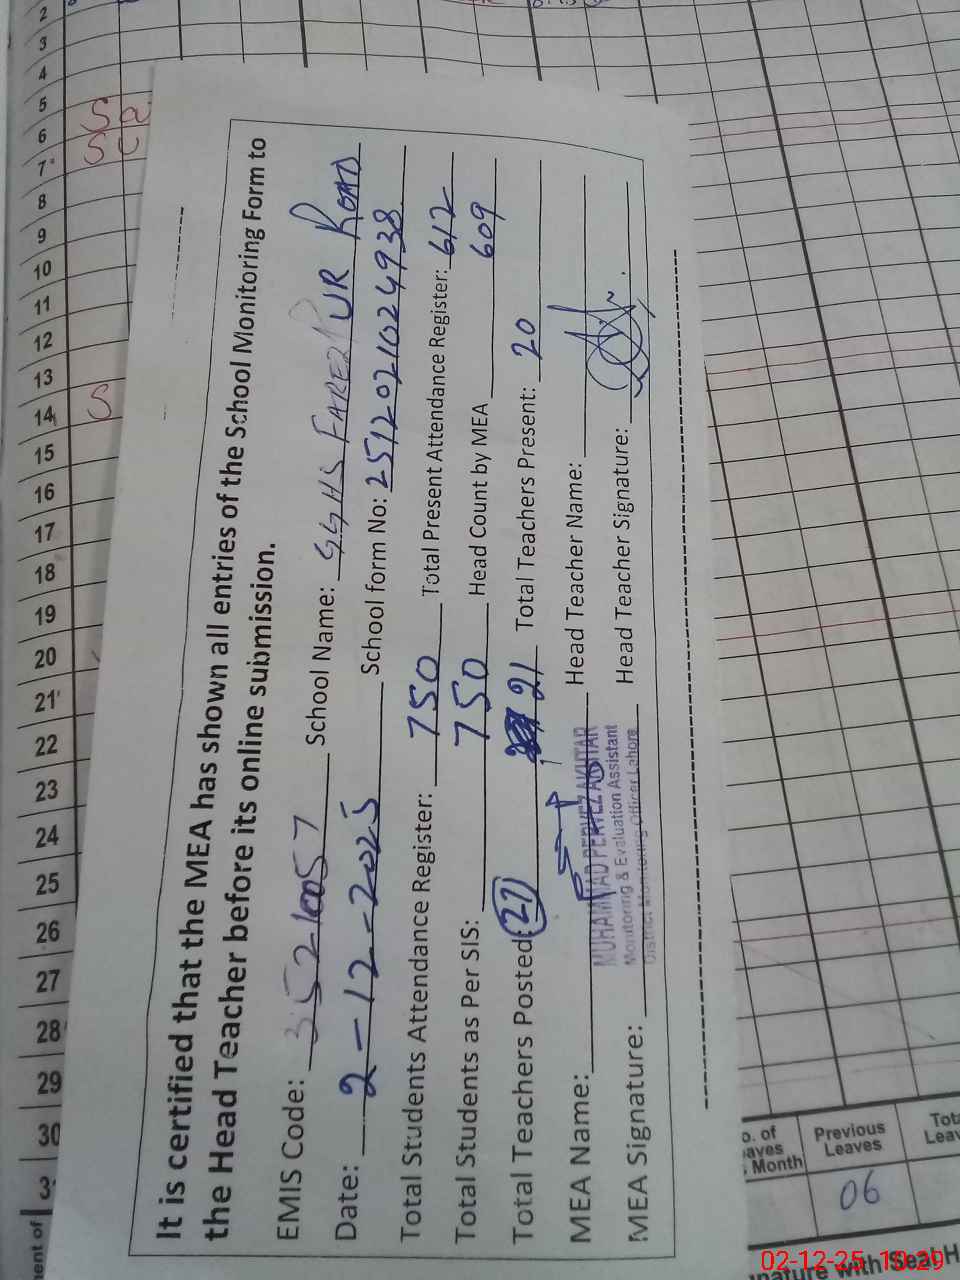 It is certified that the MEA has shown all entries of the School Monitoring Form to
the Head Teacher before its online submission.
EMIS Code: 35210057 School Name: GGHS FAREZPUR ROAD
Date: 2-12-2025 School form No: 2512021024938
Total Students Attendance Register: 750 Total Present Attendance Register: 612
Total Students as Per SIS: 750 Head Count by MEA 609
Total Teachers Posted: 21 21 Total Teachers Present: 20
MEA Name: MUHAMMAD PERVEZ AKHTAR Head Teacher Name:
Monitoring & Evaluation Assistant
District Monitoring Officer Lahore
MEA Signature: Head Teacher Signature:
2
3
4
5 Sa
6 Su
7
8
9
10
11
12
13
14 S
15
16
17
18
19
20
21
22
23
24
25
26
27
28
29
30
Previous
Leaves
Month
06
with Seal
02-12-25 10:29